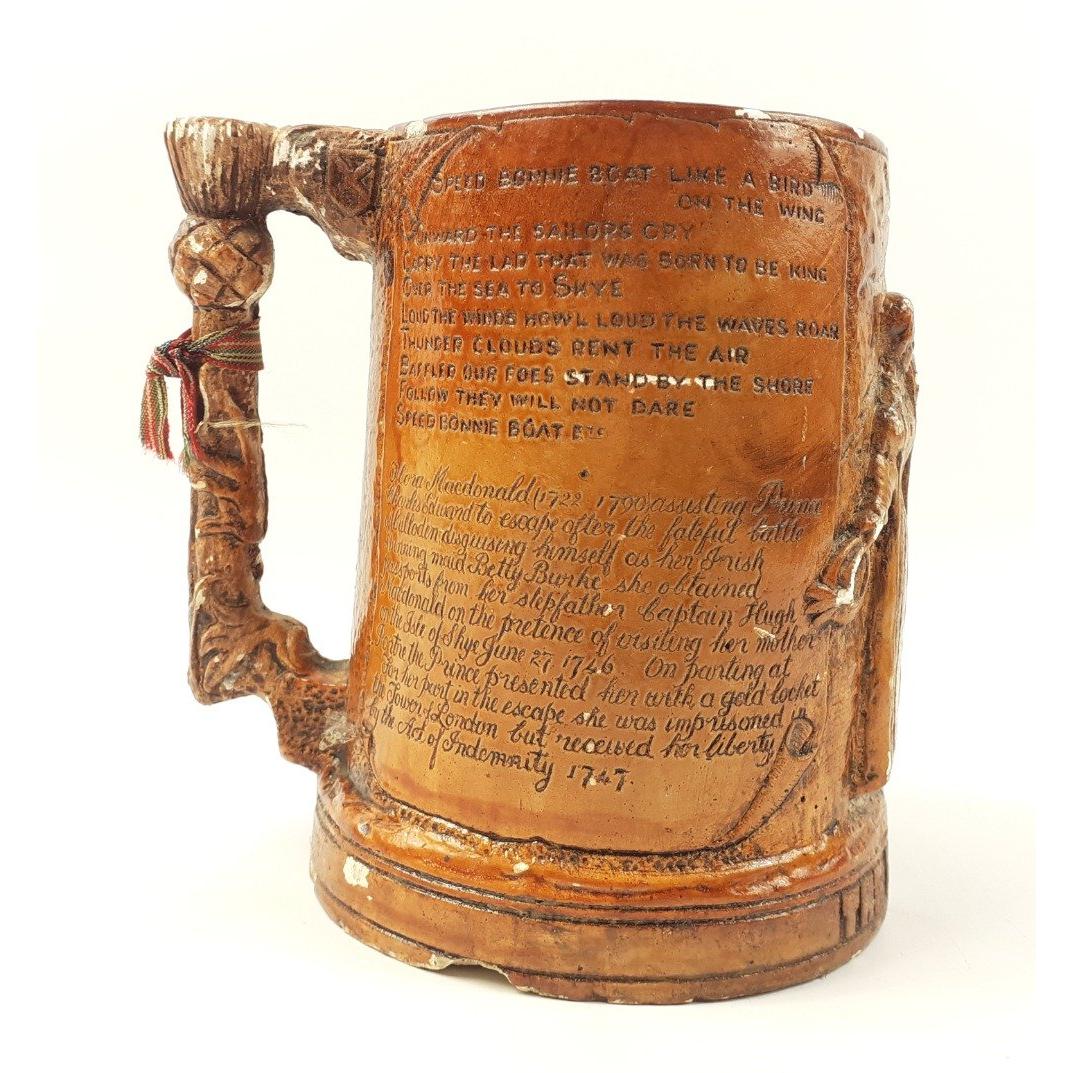 SPEED BONNIE BOAT LIKE A BIRD
ON THE WING
ONWARD THE SAILORS CRY
CARRY THE LAD THAT WAS BORN TO BE KING
OVER THE SEA TO SKYE
LOUD THE WINDS HOWL LOUD THE WAVES ROAR
THUNDER CLOUDS RENT THE AIR
BAFFLED OUR FOES STAND BY THE SHORE
FOLLOW THEY WILL NOT DARE
SPEED BONNIE BOAT ETC
Flora Macdonald (1722 1790) assisting Prince
Charles Edward to escape after the fateful battle
Culloden disguising himself as her Irish
spinning maid Betty Burke she obtained
passports from her stepfather Captain Hugh
Macdonald on the pretence of visiting her mother
on the Isle of Skye June 27, 1746. On parting at
Portree the Prince presented her with a gold locket
For her part in the escape she was imprisoned in
the Tower of London but received her liberty
by the Act of Indemnity 1747.